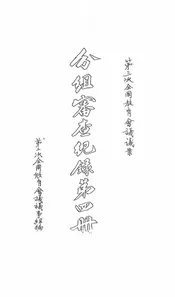 第三次全國教育會議議案
分組審查紀錄第四冊
第三次全國教育會議議事組編